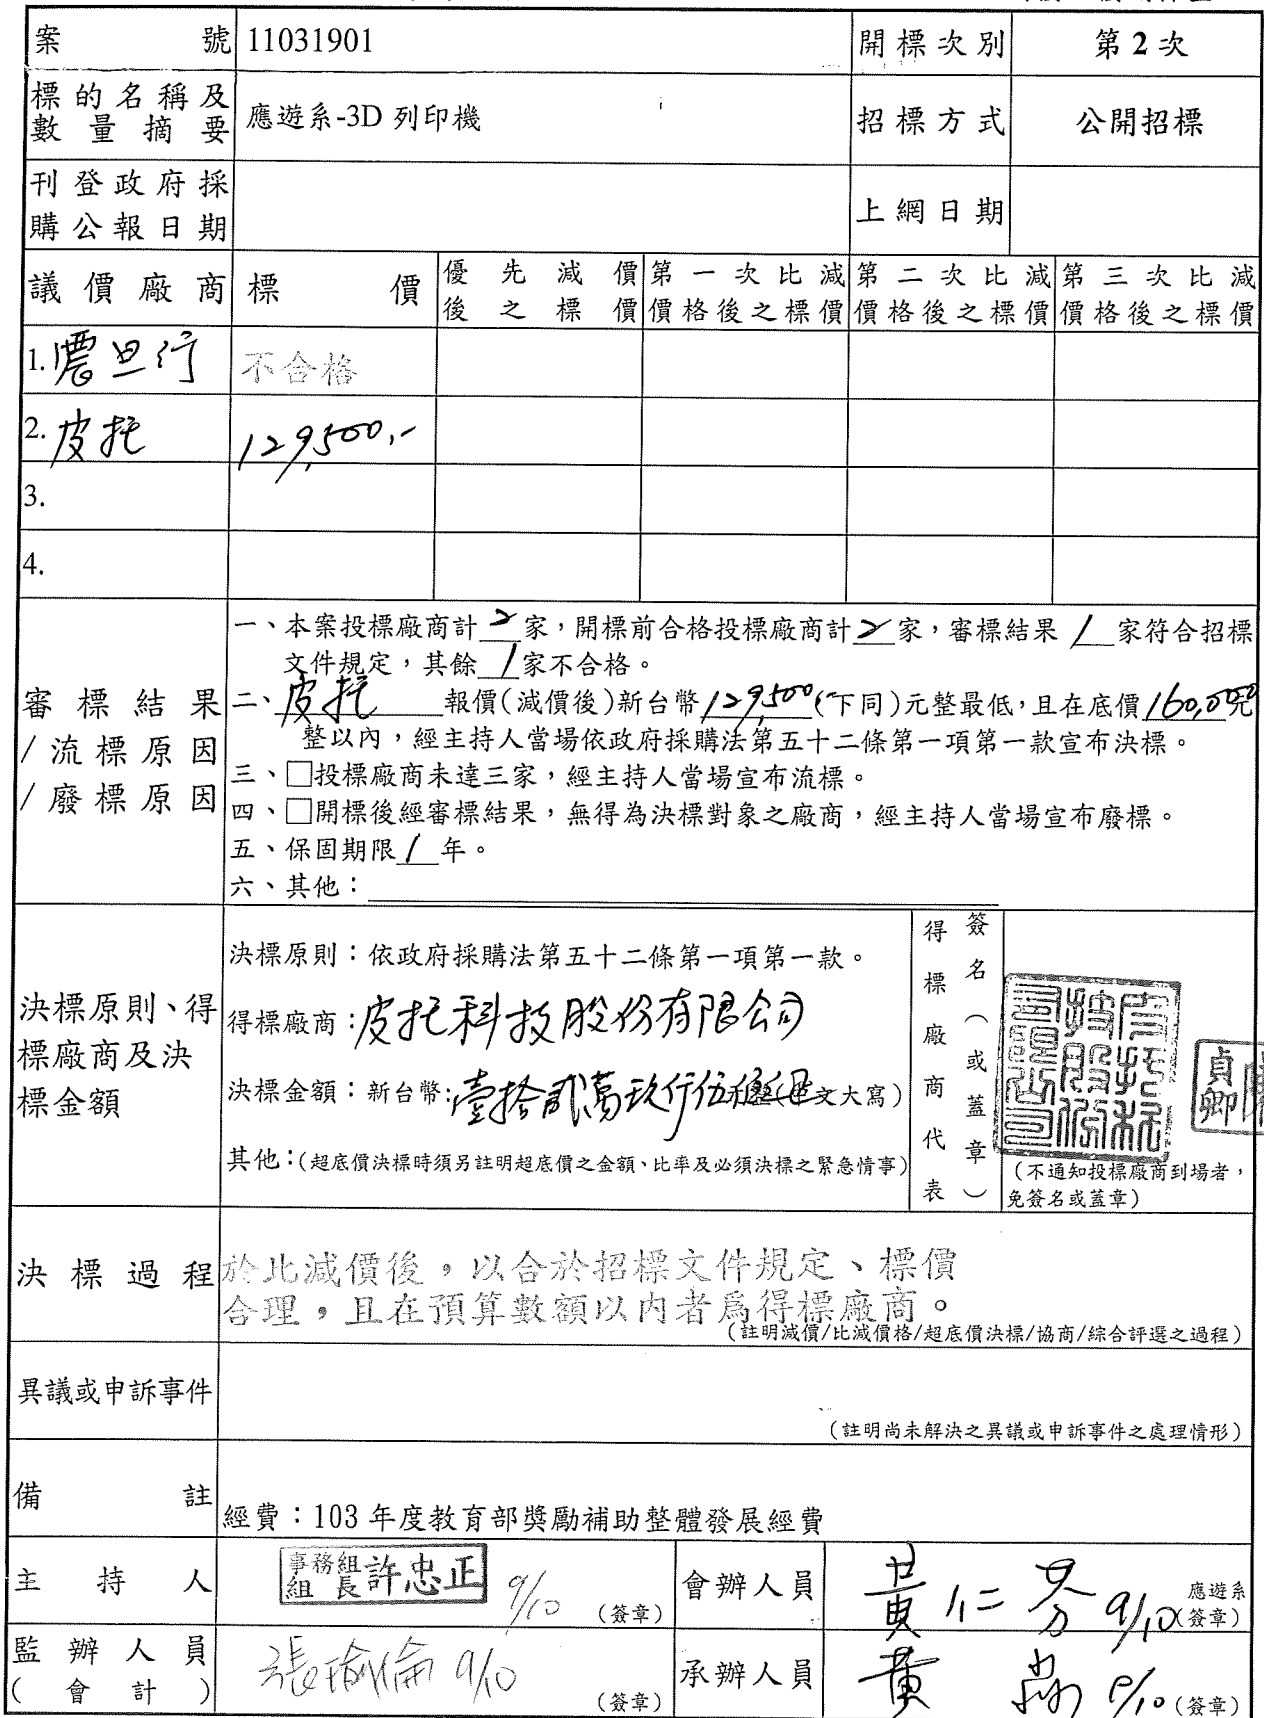 案 號 11031901 開標次別 第2次
標的名稱及數量摘要 應遊系-3D 列印機 招標方式 公開招標
刊登政府採購公報日期 上網日期
議價廠商 標價 優先減價後之標價 第一次比減價格後之標價 第二次比減價格後之標價 第三次比減價格後之標價
1. 震旦行 不合格
2. 皮托 129,500.-
3.
4.
審標結果/流標原因/廢標原因
一、本案投標廠商計2家，開標前合格投標廠商計2家，審標結果1家符合招標
文件規定，其餘1家不合格。
二、皮托報價(減價後)新台幣129,500(下同)元整最低，且在底價160,000元
整以內，經主持人當場依政府採購法第五十二條第一項第一款宣布決標。
三、□投標廠商未達三家，經主持人當場宣布流標。
四、□開標後經審標結果，無得為決標對象之廠商，經主持人當場宣布廢標。
五、保固期限1年。
六、其他：
決標原則、得標廠商及決標金額
決標原則：依政府採購法第五十二條第一項第一款。
得標廠商：皮托科技股份有限公司
決標金額：新台幣:壹拾貳萬玖仟伍佰 文大寫)
其他：(超底價決標時須另註明超底價之金額、比率及必須決標之緊急情事)
得標廠商代表
簽名（或蓋章）
皮托科技股份有限公司
貞卿
(不通知投標廠商到場者，
免簽名或蓋章)
決標過程
於比減價後，以合於招標文件規定、標價
合理，且在預算數額以內者為得標廠商。
(註明減價/比減價格/超底價決標/協商/綜合評選之過程)
異議或申訴事件
(註明尚未解決之異議或申訴事件之處理情形)
備註
經費：103 年度教育部獎勵補助整體發展經費
主持人 事務組組長許忠正 9/10 (簽章) 會辦人員 黃仁芬 9/10 應遊系(簽章)
監辦人員(會計) 張瑜倫 9/10 (簽章) 承辦人員 黃 9/10 (簽章)